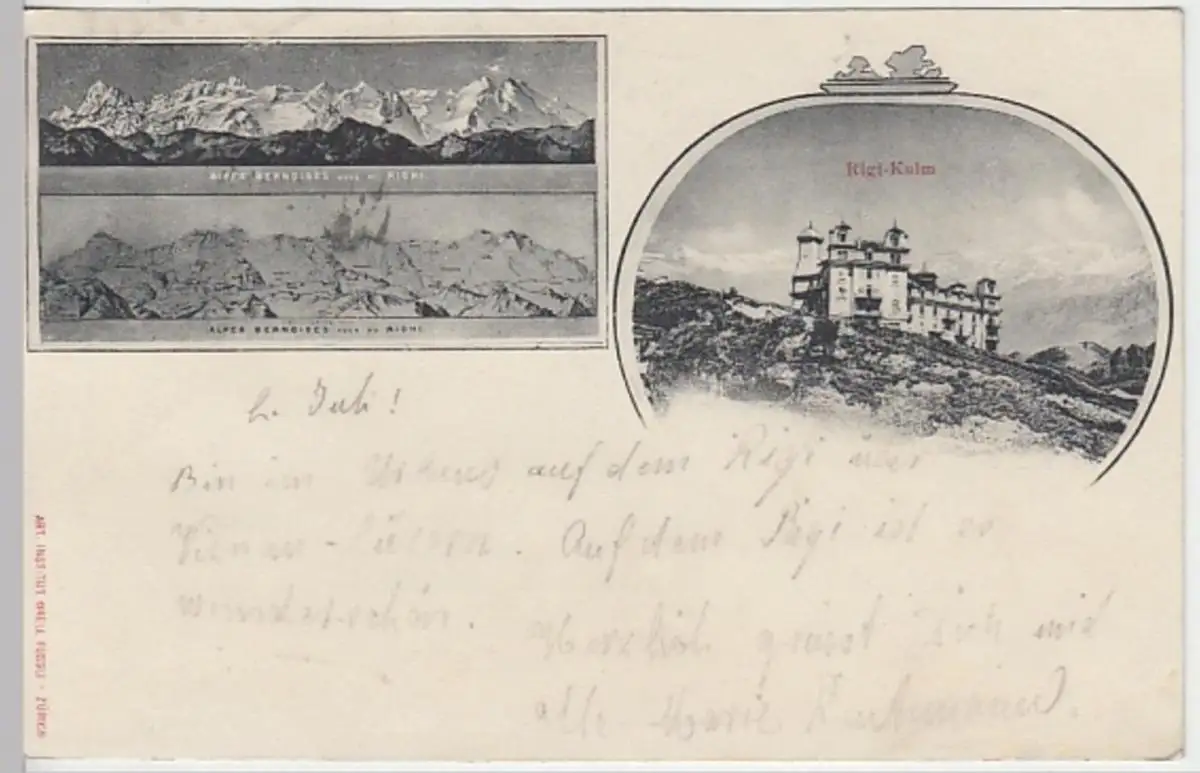 ALPES BERNOISES VUES DU RIGHI
ALPES BERNOISES VUES DU RIGHI
Rigi-Kulm
Bin im auf dem Rigi über
Auf dem Rigi ist es
wunderschön.
Herzlich grüsst Dich und
Alle Marie
ART. INSTITUT ORELL FÜSSLI - ZÜRICH